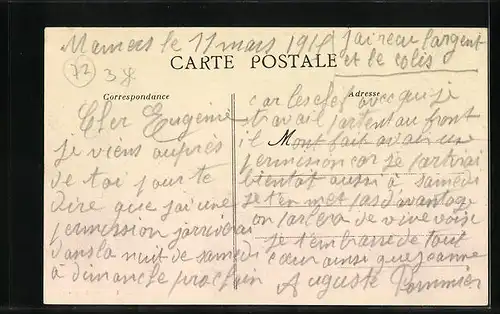 Mamers le 11 mars 191
j'ai reçu l'argent
et le colis
72
CARTE POSTALE
Correspondance
Adresse
Cher Eugenie
je viens auprès
de toi pour te
dire que j'ai une
permission j'arriverai
dans la nuit de samedi
à dimanche prochain
car les chef avec qui je
travail partent au front
il M ont fait avoir une
permission car je partirai
bientôt aussi à samedi
je t'en met pas davantage
on parlera de vive voise
je t'embrasse de tout
cœur ainsi que Jeanne
Auguste Pommier